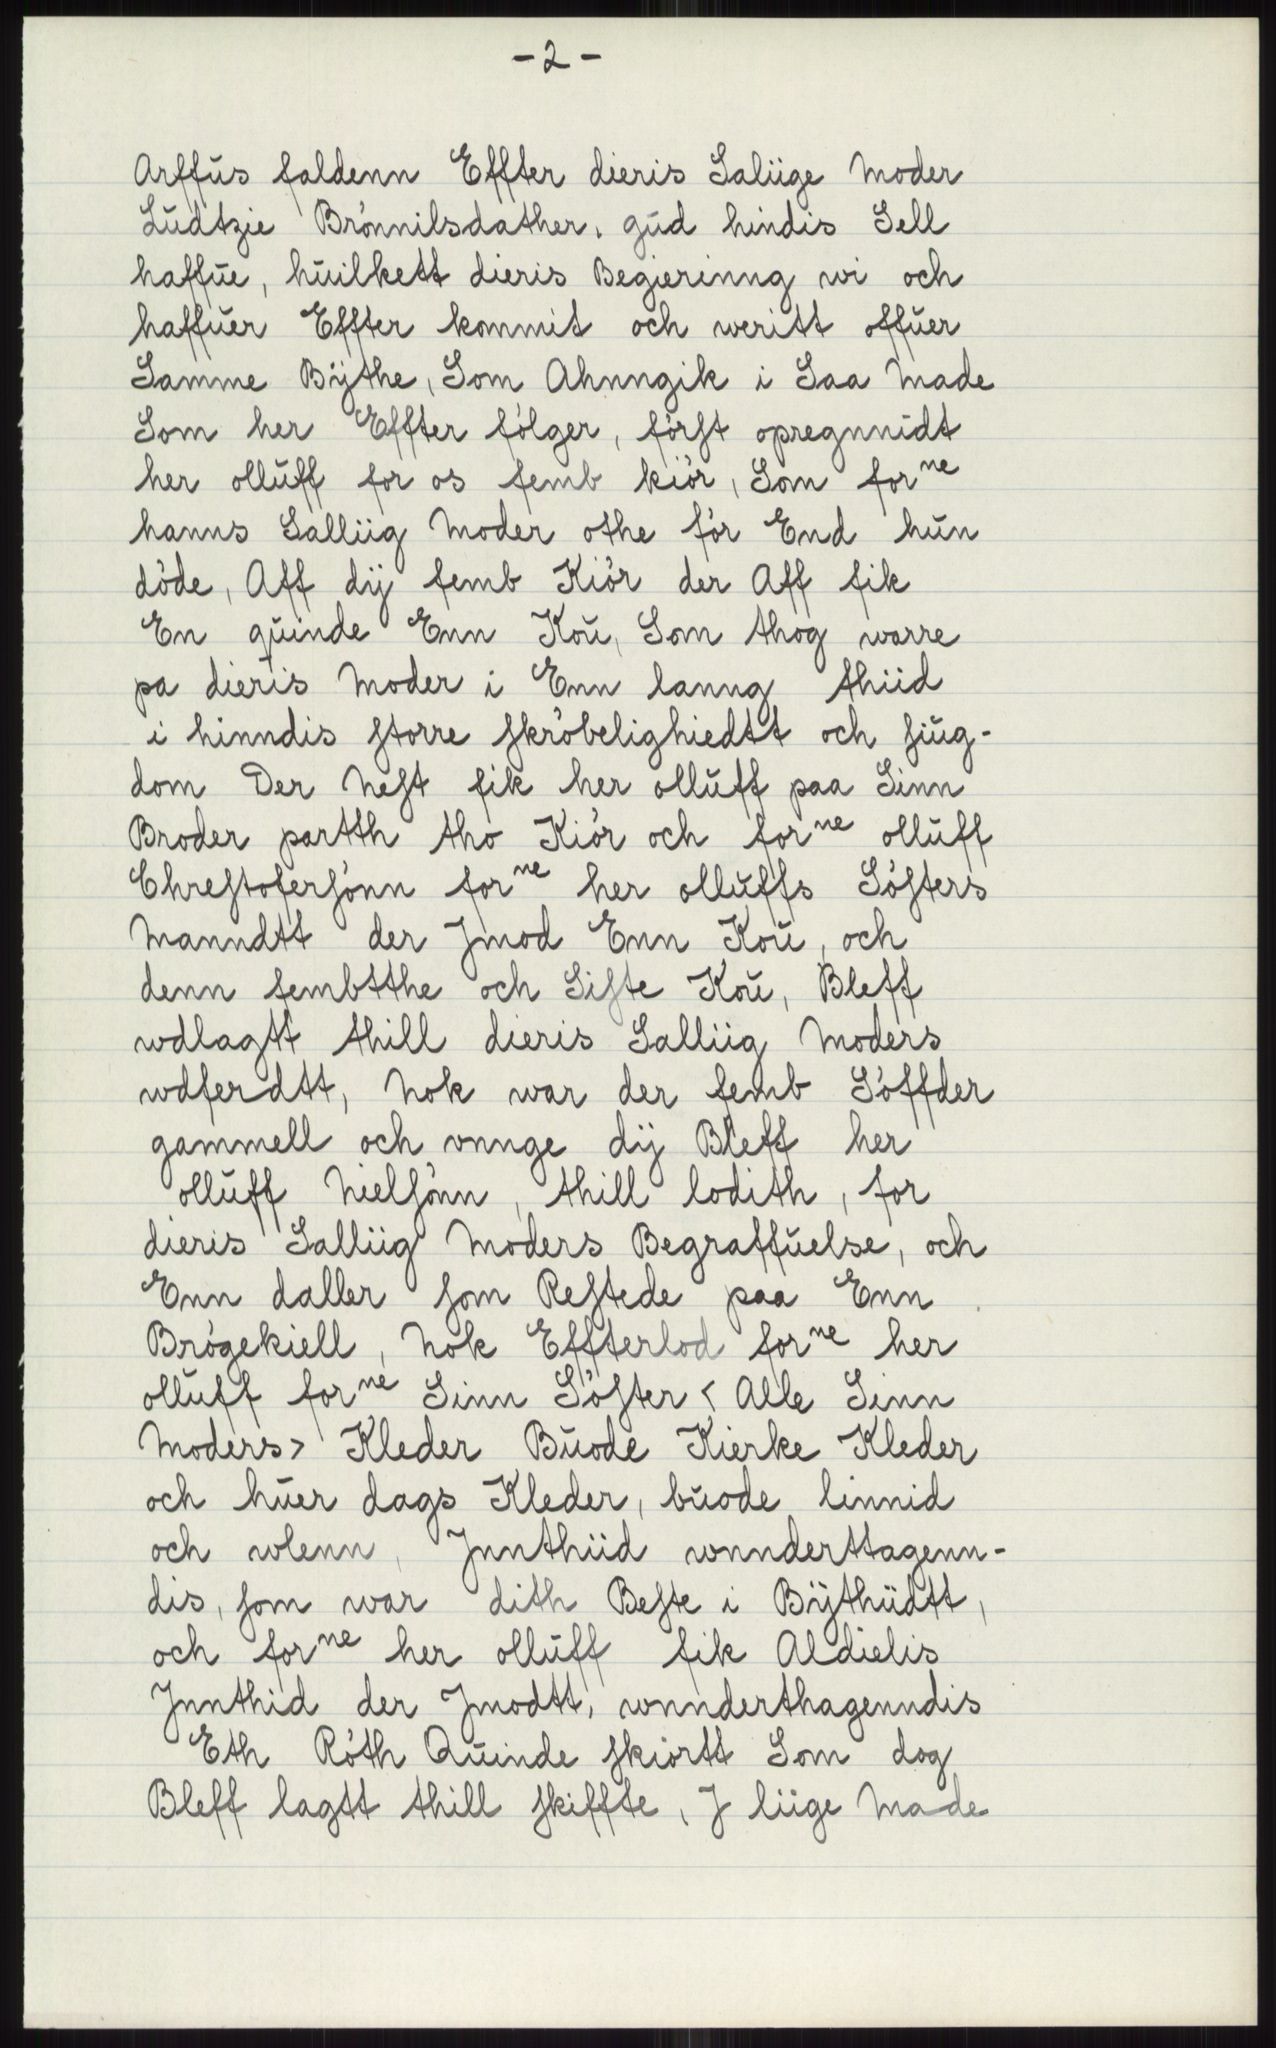 - 2 -
Arffŭs faldenn Effter dieris Saliige Moder
Lŭdtzie Brönnilsdather. gŭd hindis Sell
haffŭe, hŭilkett dieris Begierinng wi och
haffŭer Effter kommit och weritt offŭer
Samme Bÿthe, Som Ahnngik i Saa Made
Som her Effter fölger, först opregnnidt
her ollŭff for os femb kiör, Som forne
hanns Salliig Moder othe för End hŭn
döde, Aff dÿ femb Kiör der Aff fik
En qŭinde Enn Koŭ, Som thog warre
pa dieris Moder i Enn lanng thiid
i hinndis storre skröbelighiedtt och siŭg-
dom Der Nest fik her ollŭff paa Sinn
Broder partth tho Kiör och forne ollŭff
Chrestofersönn forne her ollŭffs Sösters
Manndtt der Jmod Enn Koŭ, och
denn fembtthe och Siste Koŭ, Bleff
wdlagtt thill dieris Salliig Moders
wdferdtt, Nok war der femb Söffder
gammell och vnnge dÿ Bleff her
ollŭff Nielsönn, thill lodith, for
dieris Salliig Moders Begraffŭelse, och
Enn daller som Restede paa Enn
Brögekiell, Nok Effterlod forne her
ollŭff forne Sinn Söster < Alle Sinn
Moders > Kleder Bŭode Kierke Kleder
och hŭer dags Kleder, bŭode linnid
och wlenn, Jnnthiid wnnderttagenn-
dis, som war dith Beste i Bÿthŭdtt,
och forne her ollŭff fik Aldielis
Jnnthid der Jmodtt, wnnderthagenndis
Eth Röth Qŭinde skiortt Som dog
Bleff lagtt thill skiffte, J liige Made